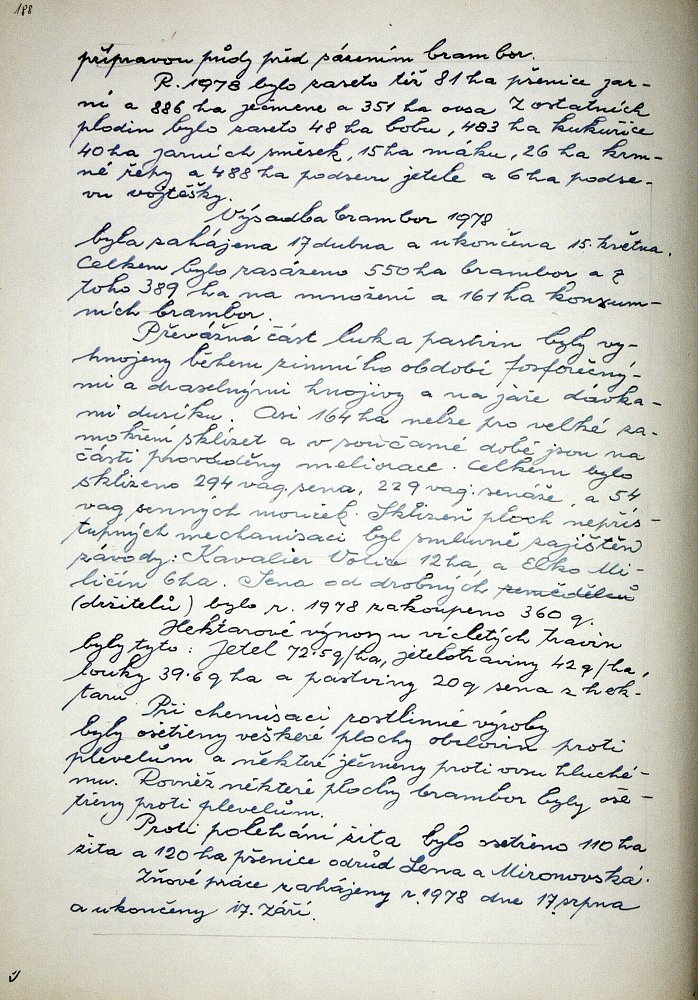 188
přípravou půdy před sázením brambor.
R. 1978 bylo zaseto též 81 ha pšenice jar-
ní a 886 ha ječmene a 351 ha ovsa Z ostatních
plodin bylo zaseto 48 ha bobu, 483 ha kukuřice
40 ha jarních směsek, 15 ha máku, 26 ha krm-
né řepy a 488 ha podsevu jetele a 6 ha podse-
vu vojtěšky.
Výsadba brambor 1978
byla zahájena 17 dubna a ukončena 15. května.
Celkem bylo zasázeno 550 ha brambor a z
toho 389 ha na množení a 161 ha konzum-
ních brambor.
Převážná část luk a pastvin byly vy-
hnojeny během zimního období fosforečný-
mi a draselnými hnojivy a na jaře dávka-
mi dusíku. Asi 164 ha nelze pro velké za-
mokření sklízet a v současné době jsou na
části prováděny meliorace. Celkem bylo
sklizeno 294 vag. sena, 229 vag. senáže, a 54
vag senných mouček. Sklizeň ploch nepřís-
tupných mechanisaci byl smluvně zajištěn
závody: Kavalier Votice 12 ha, a Elko Mi-
ličín 6 ha. Sena od drobných zemědělců
(držitelů) bylo r. 1978 zakoupeno 360 q.
Hektarové výnosy u víceletých travin
byly tyto: jetel 72.5 q/ha, jetelotraviny 42 q/ha,
louky 39.6 q ha a pastviny 20 q sena z hek-
taru.
Při chemisaci rostlinné výroby
byly ošetřeny veškeré plochy obilovin proti
plevelům a některé ječmeny proti ovsu hluché-
mu. Rovněž některé plochy brambor byly oše-
třeny proti plevelům.
Proti poléhání žita bylo ošetřeno 110 ha
žita a 120 ha pšenice odrůd Lena a Mironovská.
Žňové práce zahájeny r. 1978 dne 17. srpna
a ukončeny 17. září.